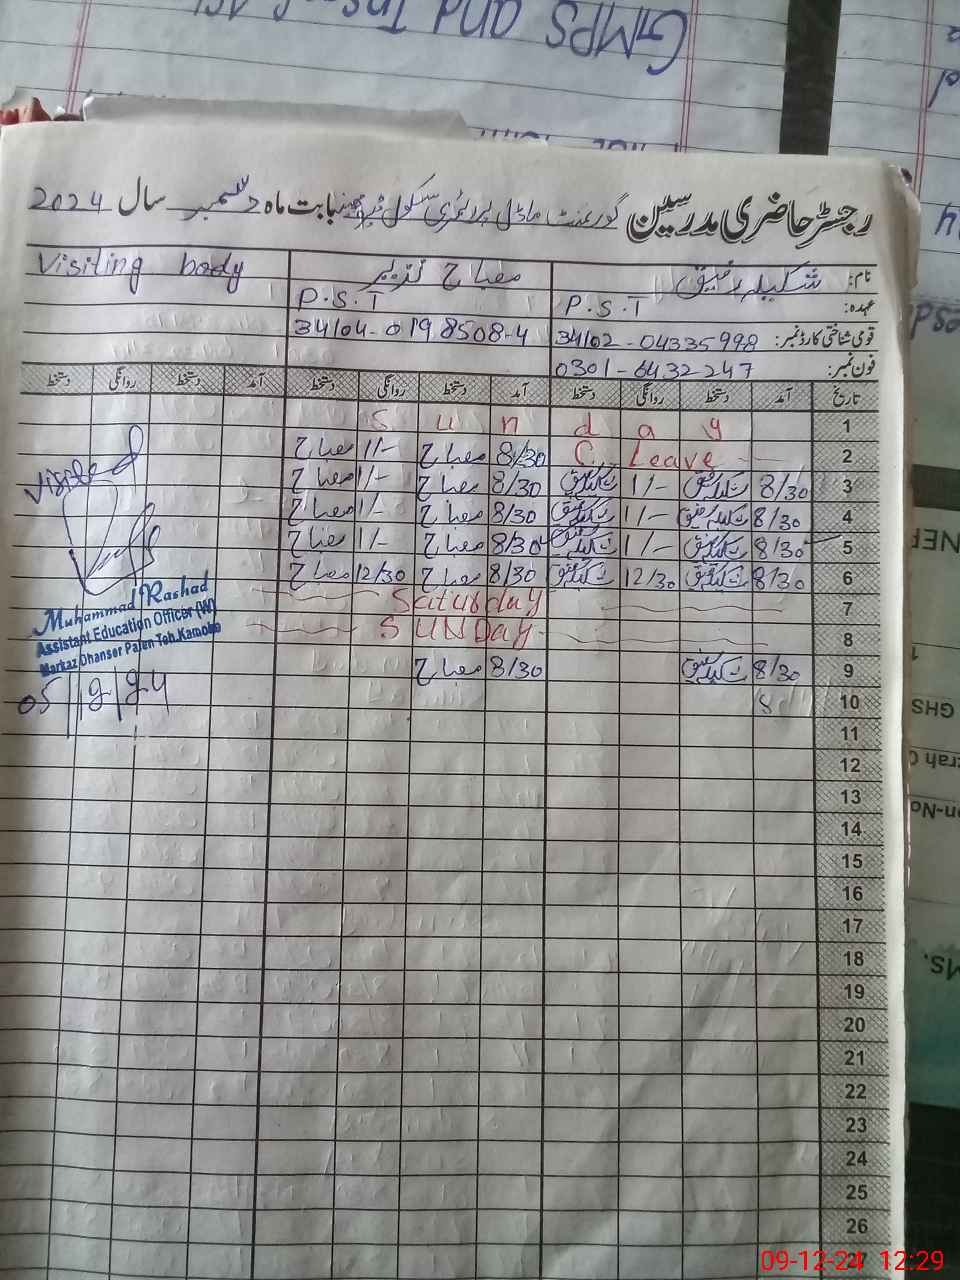 GMPS and
رجسٹر حاضری مدرسین گورنمنٹ ماڈل پرائمری سکول بابت ماہ دسمبر سال 2024
نام: شکیلہ رفیق مصباح نذیر Visiting body
عہدہ: P.S.T P.S.T
قومی شناختی کارڈ نمبر: 34102-04335998 34104-0198508-4
فون نمبر: 0301-6432247
تاریخ آمد دستخط روانگی دستخط آمد دستخط روانگی دستخط آمد دستخط روانگی دستخط
1 Sunday
2 C. Leave 8/30 مصباح 1/- مصباح
3 8/30 شکیلہ رفیق 1/- شکیلہ رفیق 8/30 مصباح 1/- مصباح
4 8/30 شکیلہ رفیق 1/- شکیلہ رفیق 8/30 مصباح 1/- مصباح
5 8/30 شکیلہ رفیق 1/- شکیلہ رفیق 8/30 مصباح 1/- مصباح
6 8/30 شکیلہ رفیق 12/30 شکیلہ رفیق 8/30 مصباح 12/30 مصباح
7 Saturday
8 SUNDAY
9 8/30 شکیلہ رفیق 8/30 مصباح
10 8
11
12
13
14
15
16
17
18
19
20
21
22
23
24
25
26
27
Visited
Muhammad Rashad
Assistant Education Officer (W)
Markaz Dhanser Paien Teh. Kamoke
GHS
Ms.
09-12-24 12:29